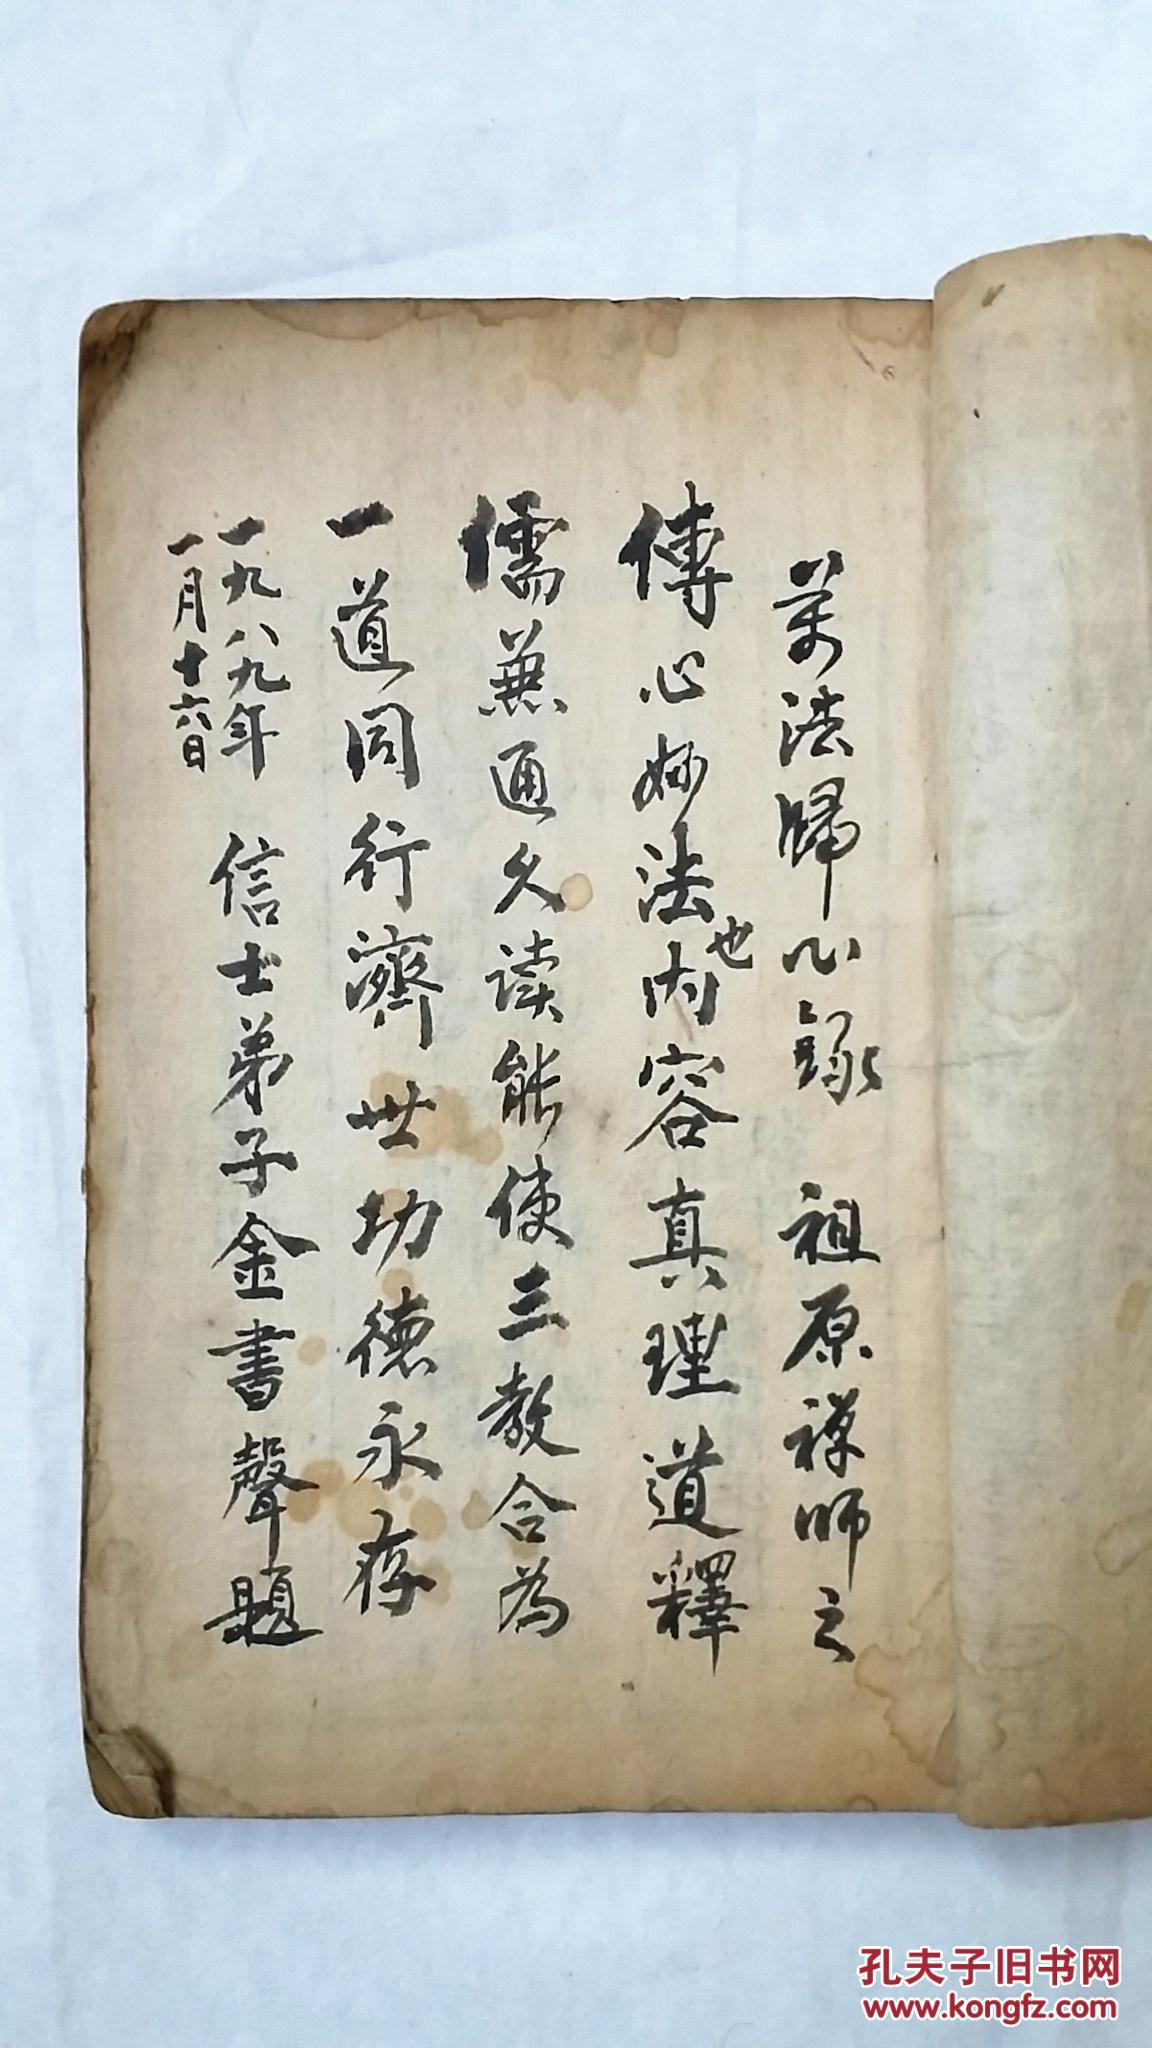 萬法歸心録 祖原禅师之
傳心妙法也内容真理道釋
儒兼通久读能使三教合為
一道同行濟世功德永存
一九八九年
一月十六日
信士弟子金書聲題
孔夫子旧书网
www.kongfz.com